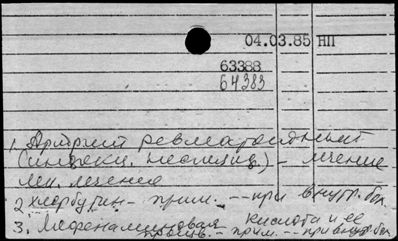 04.03.85 НП
63388
64383
1. Артрит ревматоидный
(инфекц. неспециф.) - лечение
лек. лечение
2 хлорбутин - прим. -- при внутр. бол.
3. Мефенаминовая кислота и ее
произв. - прим. -- при внутр. бол.